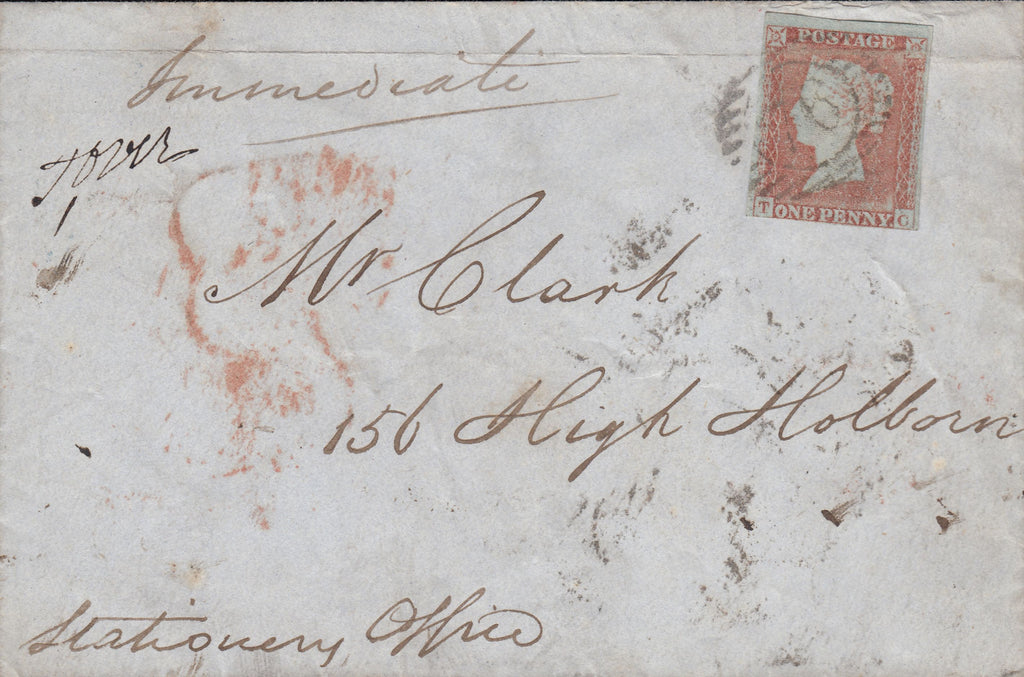 Immediate
POSTAGE
ONE PENNY.
T C
Mr Clark
156 High Holborn
Stationery Office